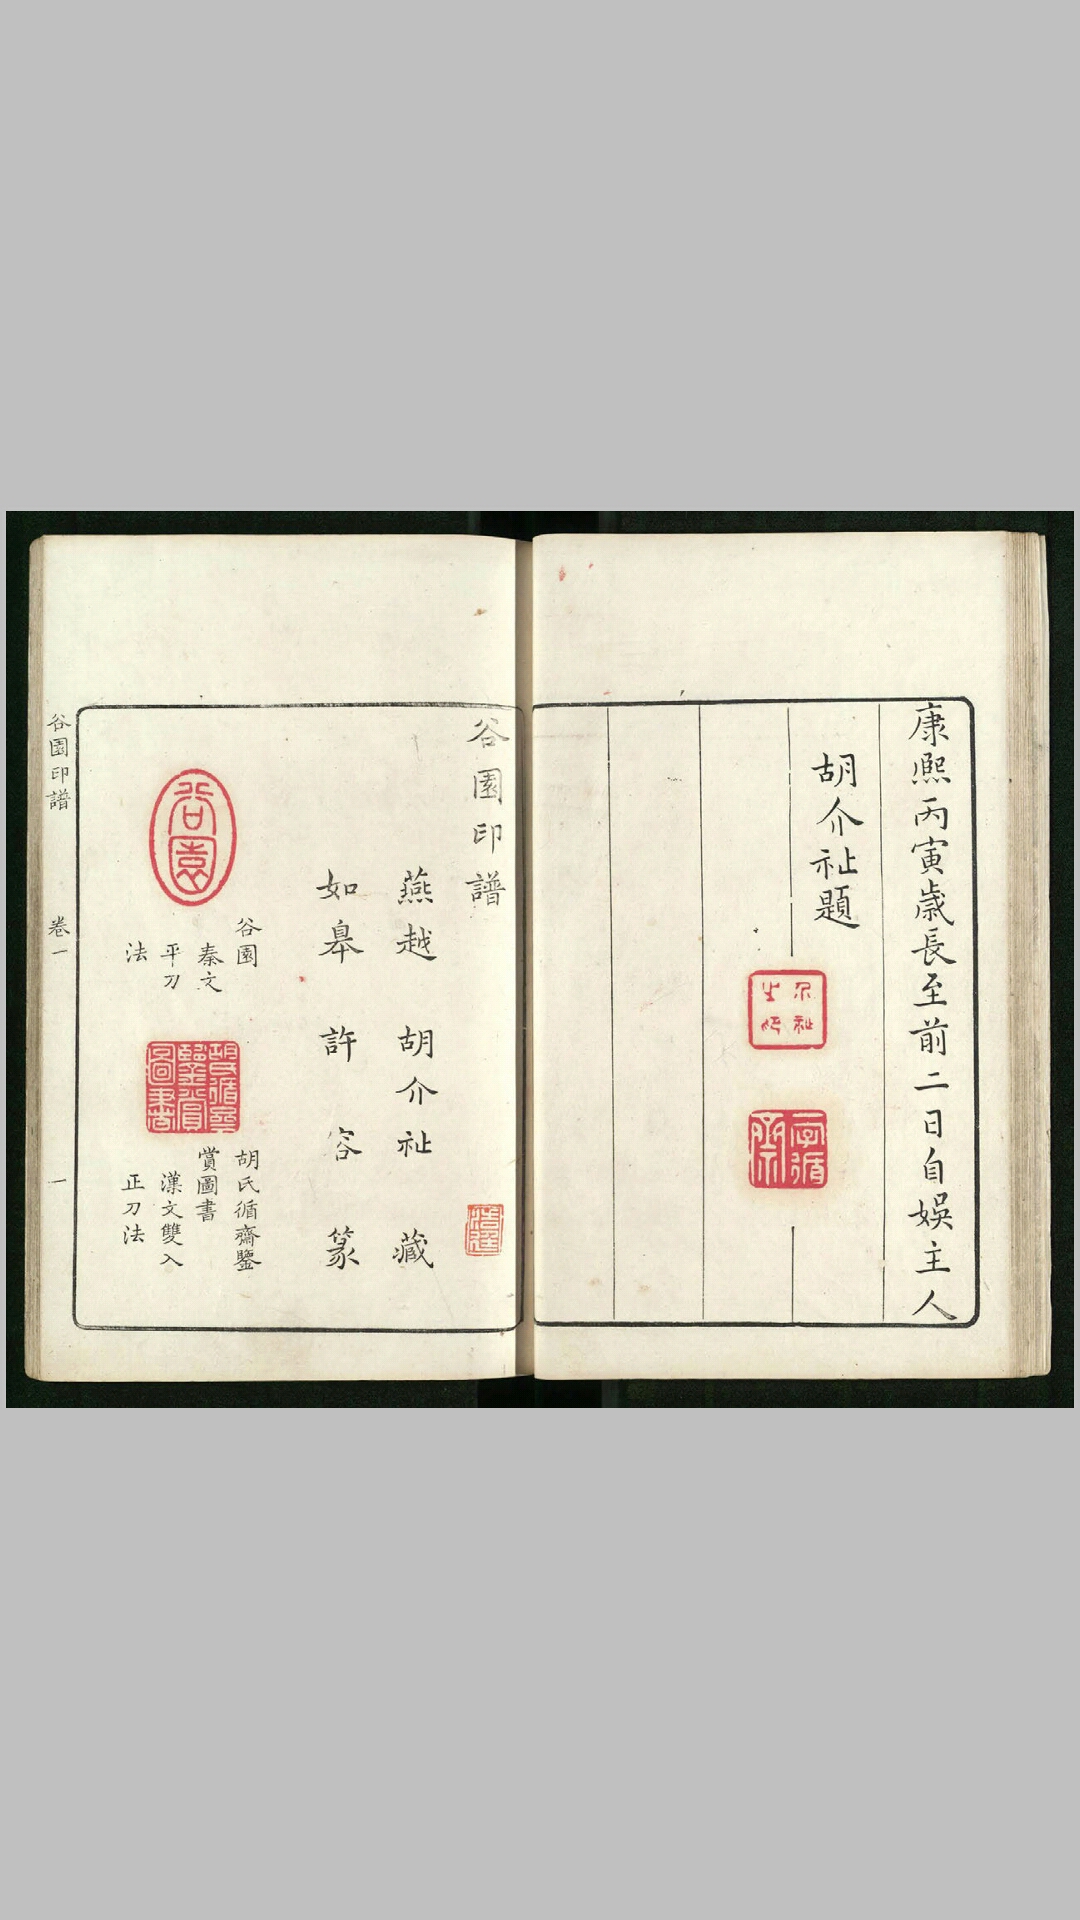 康熙丙寅歲長至前二日自娛主人
胡介祉題
介祉
之印
字循
齋
谷園印譜
燕越 胡介祉 藏
如皋 許容 篆
谷園
谷園
秦文
平刀
法
胡氏循齋
鑒賞
圖書
胡氏循齋鑒
賞圖書
漢文雙入
正刀法
谷園印譜 卷一 一